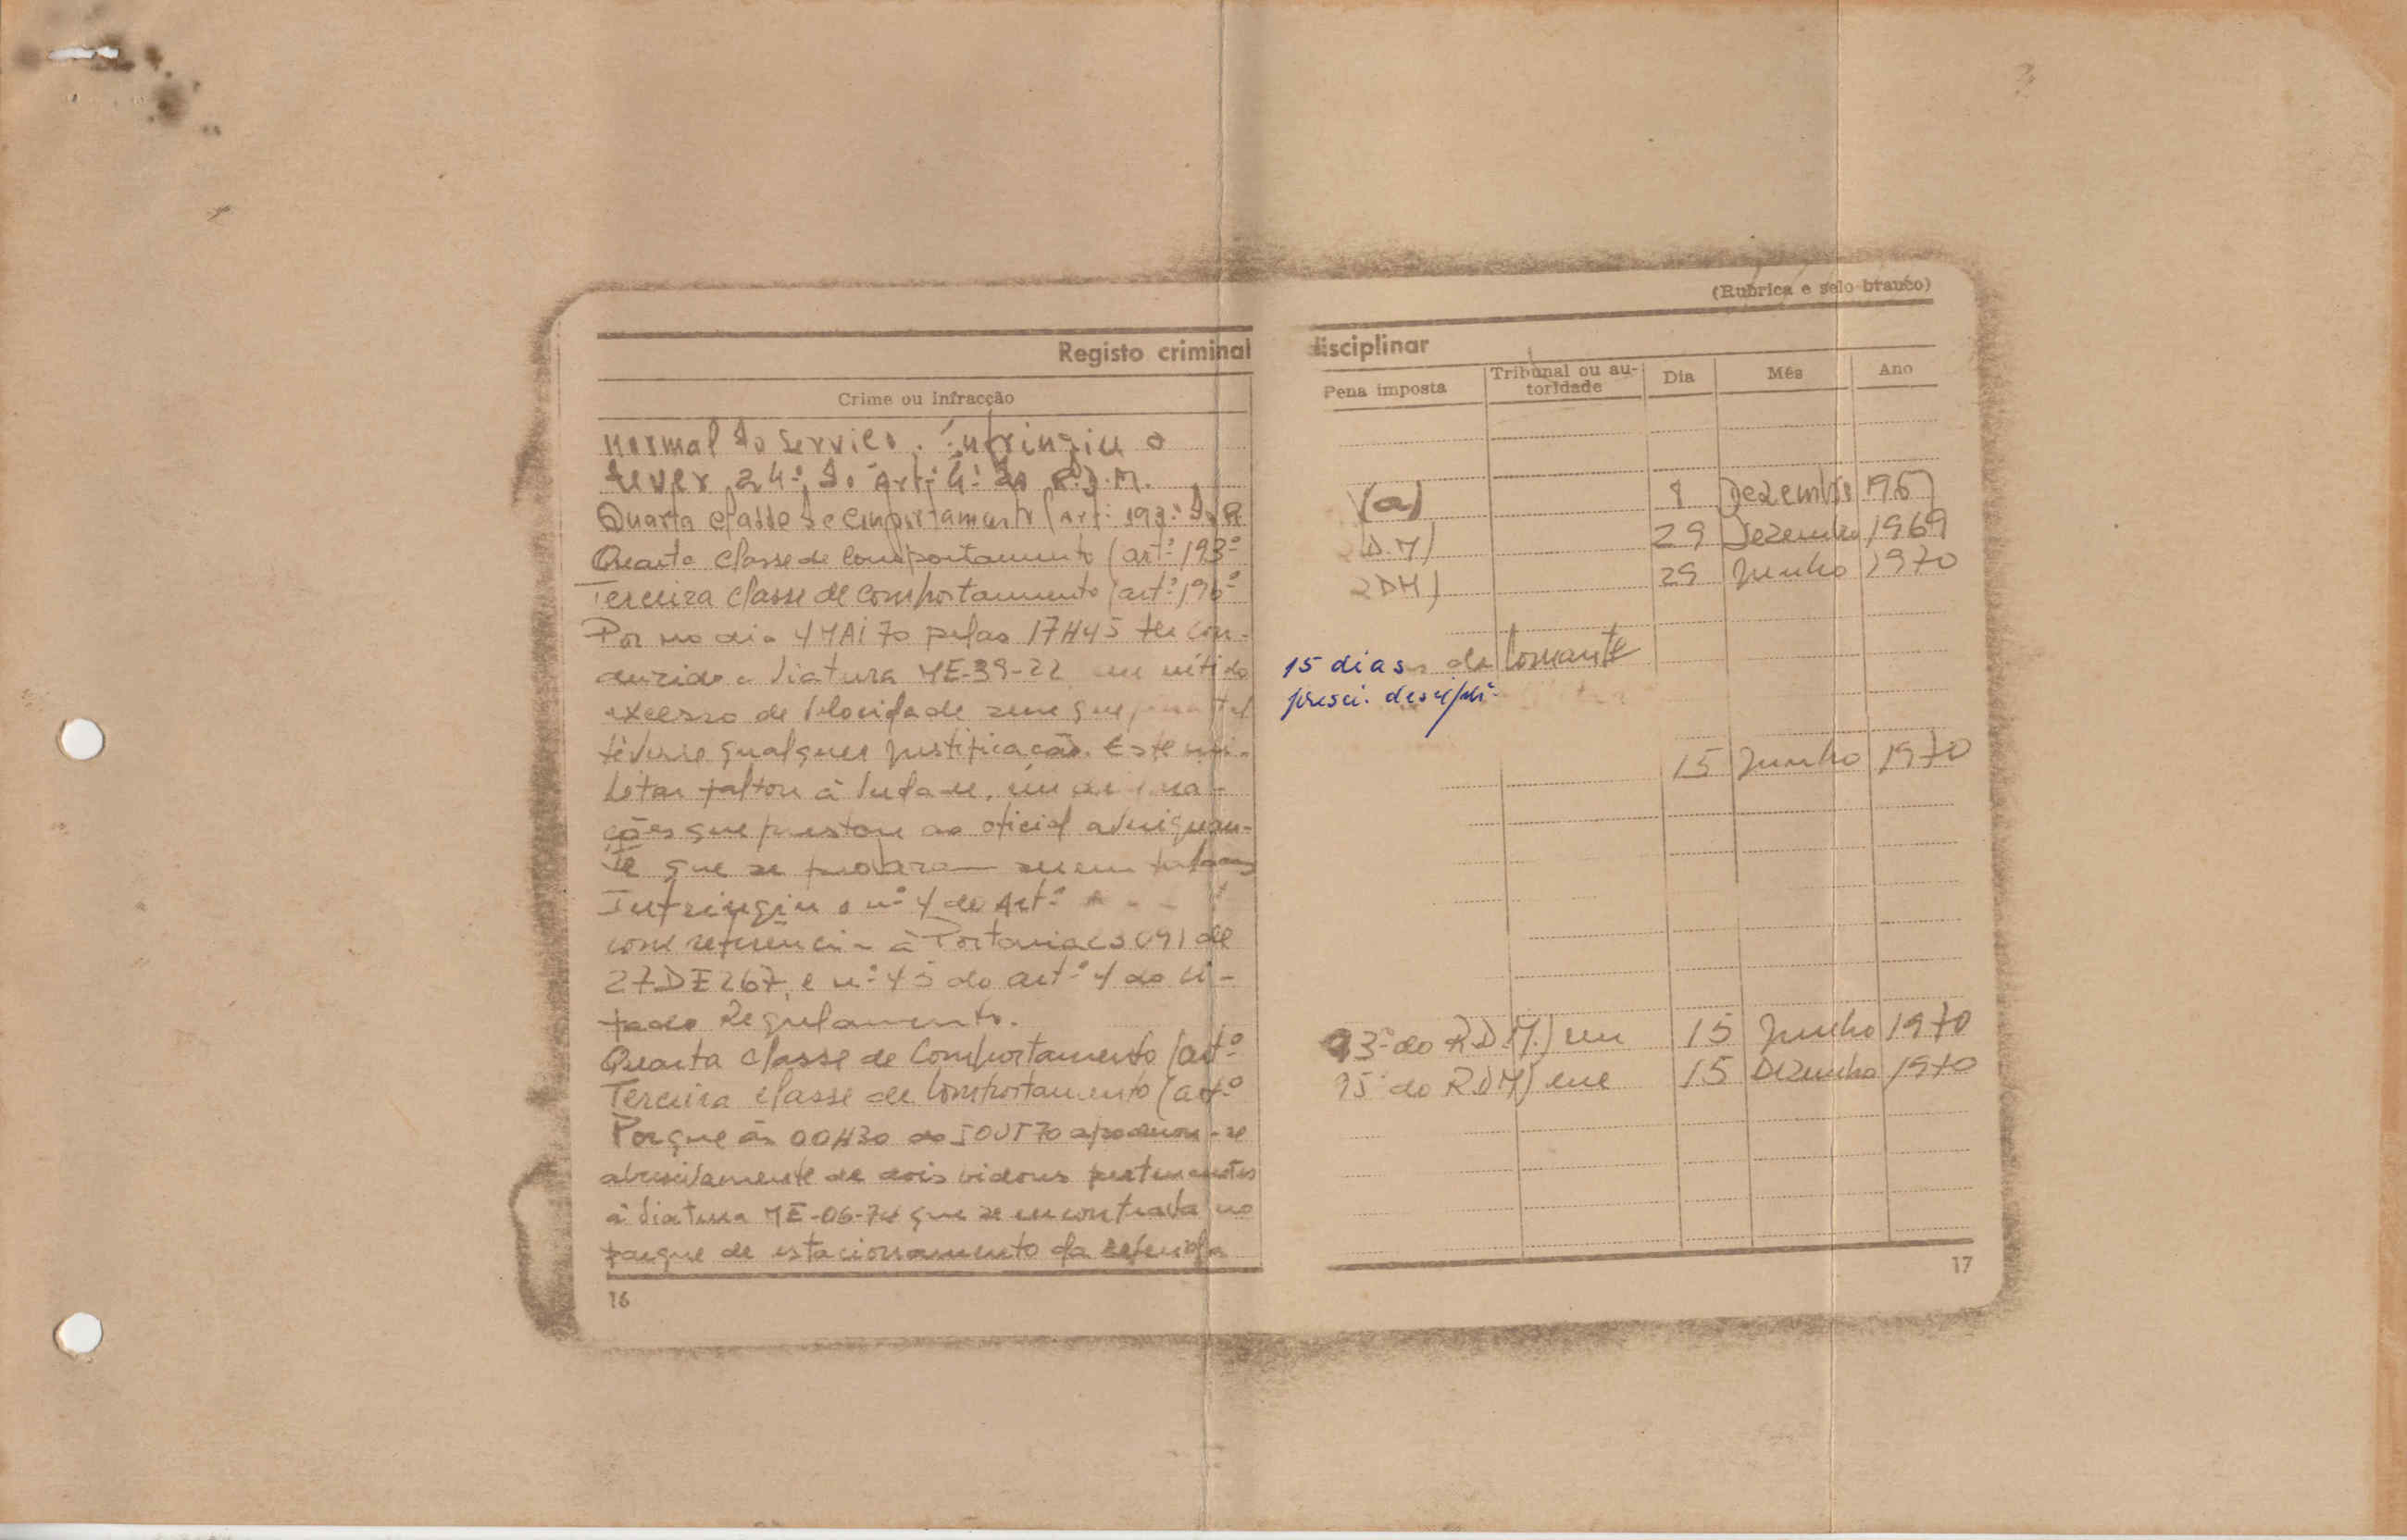 Registo criminal
Crime ou infracção
normal do serviço. Infringiu o
dever 24.º do art.º 4.º do R.D.M.
Quarta classe de comportamento (art.º 193.º do R
Quarta classe de comportamento (art.º 193.º
Terceira classe de comportamento (art.º 196.º
Por no dia 4MAI70 pelas 17H45 ter con-
duzido a viatura ME-39-22 em nítido
excesso de velocidade sem que para tal
tivesse qualquer justificação. Este mi-
litar faltou à verdade, nas
ções que prestou ao oficial averiguan-
te que se provaram serem falsas
Infringiu o n.º 4 do Art.º
com referência à Portaria 23091 de
27DEZ67, e n.º 45 do art.º 4 do ci-
tado Regulamento.
Quarta classe de Comportamento (art.º
Terceira classe de Comportamento (art.º
Porque às 00H30 do 5OUT70 apoderou-se
abusivamente de dois bidons pertencentes
à viatura ME-06-74 que se encontrava no
parque de estacionamento da referida
16
(Rubrica e selo branco)
disciplinar
Pena imposta
Tribunal ou au-
toridade
Dia
Mês
Ano
(a) 8 Dezembro 1967
D.M) 29 Dezembro 1969
RDM) 29 Junho 1970
15 dias de Comante
prisci. discipli-
15 Junho 1970
93.º do R.D.M.) em 15 Junho 1970
95.º do R.D.M) em 15 Dezembro 1970
17